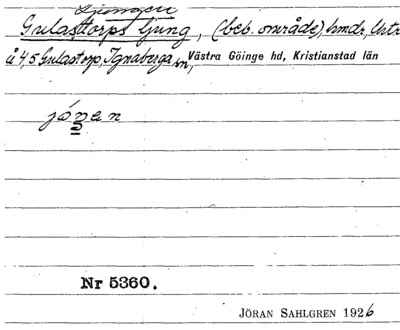 Ljungen
Gulastorps ljung, (beb. område), hmdr, Urtr
å 4, 5 Gulastorp, Ignaberga sn, Västra Göinge hd, Kristianstad län
jóŋan
Nr 5360.
JÖRAN SAHLGREN 1926